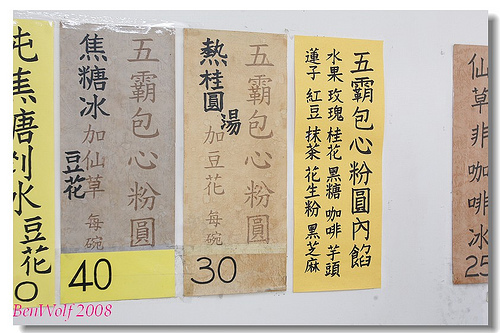 豆花
五霸包心粉圓
焦糖冰加仙草 每碗
豆花
40
五霸包心粉圓
湯
熱桂圓加豆花 每碗
30
五霸包心粉圓內餡
水果 玫瑰 桂花 黑糖 咖啡 芋頭
蓮子 紅豆 抹茶 花生粉 黑芝麻
仙草非咖啡冰
25
BenWolf 2008